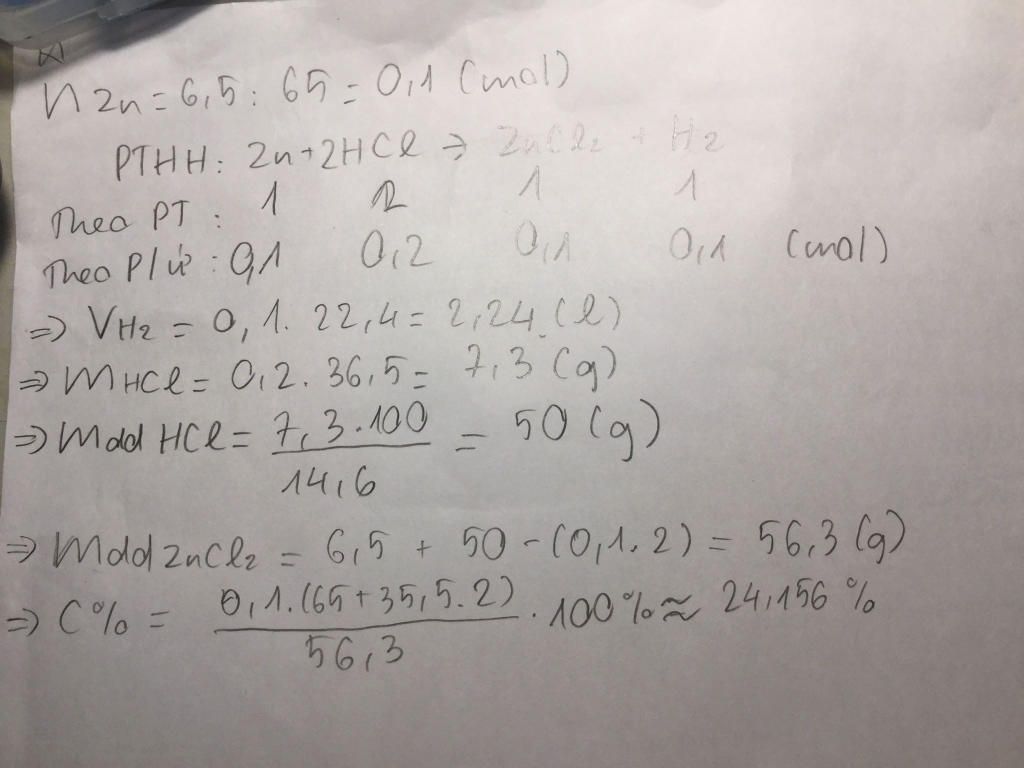 n Zn = 6,5 : 65 = 0,1 (mol)
PTHH: Zn + 2HCl => ZnCl2 + H2
Theo PT : 1 2 1 1
Theo P/ứ : 0,1 0,2 0,1 0,1 (mol)
=> VH2 = 0,1. 22,4 = 2,24 (l)
=> mHCl = 0,2. 36,5 = 7,3 (g)
=> mdd HCl = 7,3.100 / 14,6 = 50 (g)
=> mdd ZnCl2 = 6,5 + 50 - (0,1.2) = 56,3 (g)
=> C% = 0,1.(65+35,5.2) / 56,3 . 100% ≈ 24,156 %